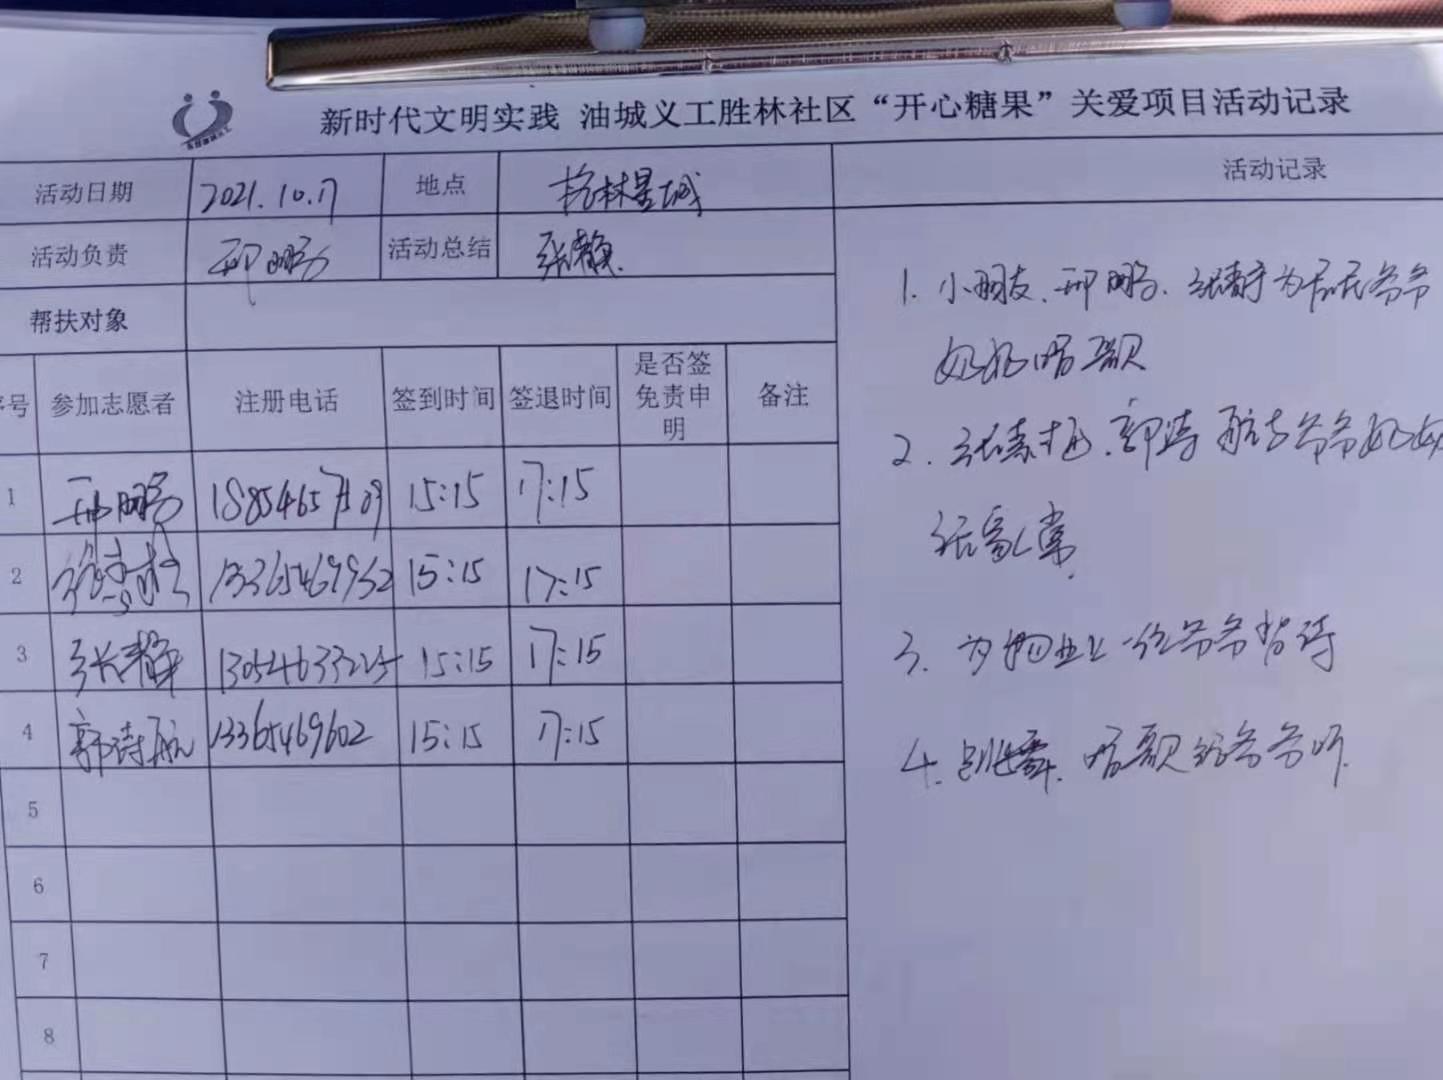 新时代文明实践 油城义工胜林社区“开心糖果”关爱项目活动记录
活动日期 2021.10.17 地点 格林星城 活动记录
活动负责 邢鹏 活动总结 张静
帮扶对象
序号 参加志愿者 注册电话 签到时间 签退时间 是否签免责申明 备注
1 邢鹏 15:15 17:15
2 13365469932 15:15 17:15
3 张静 13054633225 15:15 17:15
4 郭诗航 13365469602 15:15 17:15
5
6
7
8
1. 小朋友、邢鹏、张静为居民爷爷
奶奶唱歌
2. 郭诗航与爷爷奶奶
话家常
3. 为物业上一位爷爷背诗
4. 跳舞、唱歌给爷爷听.